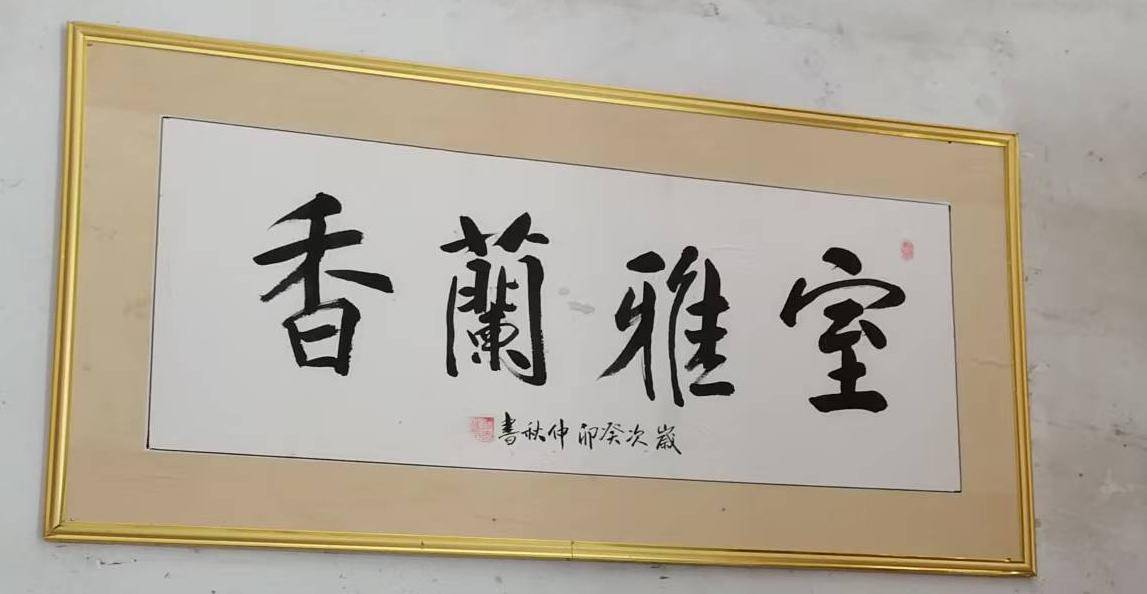 室雅蘭香
歲次癸卯仲秋書